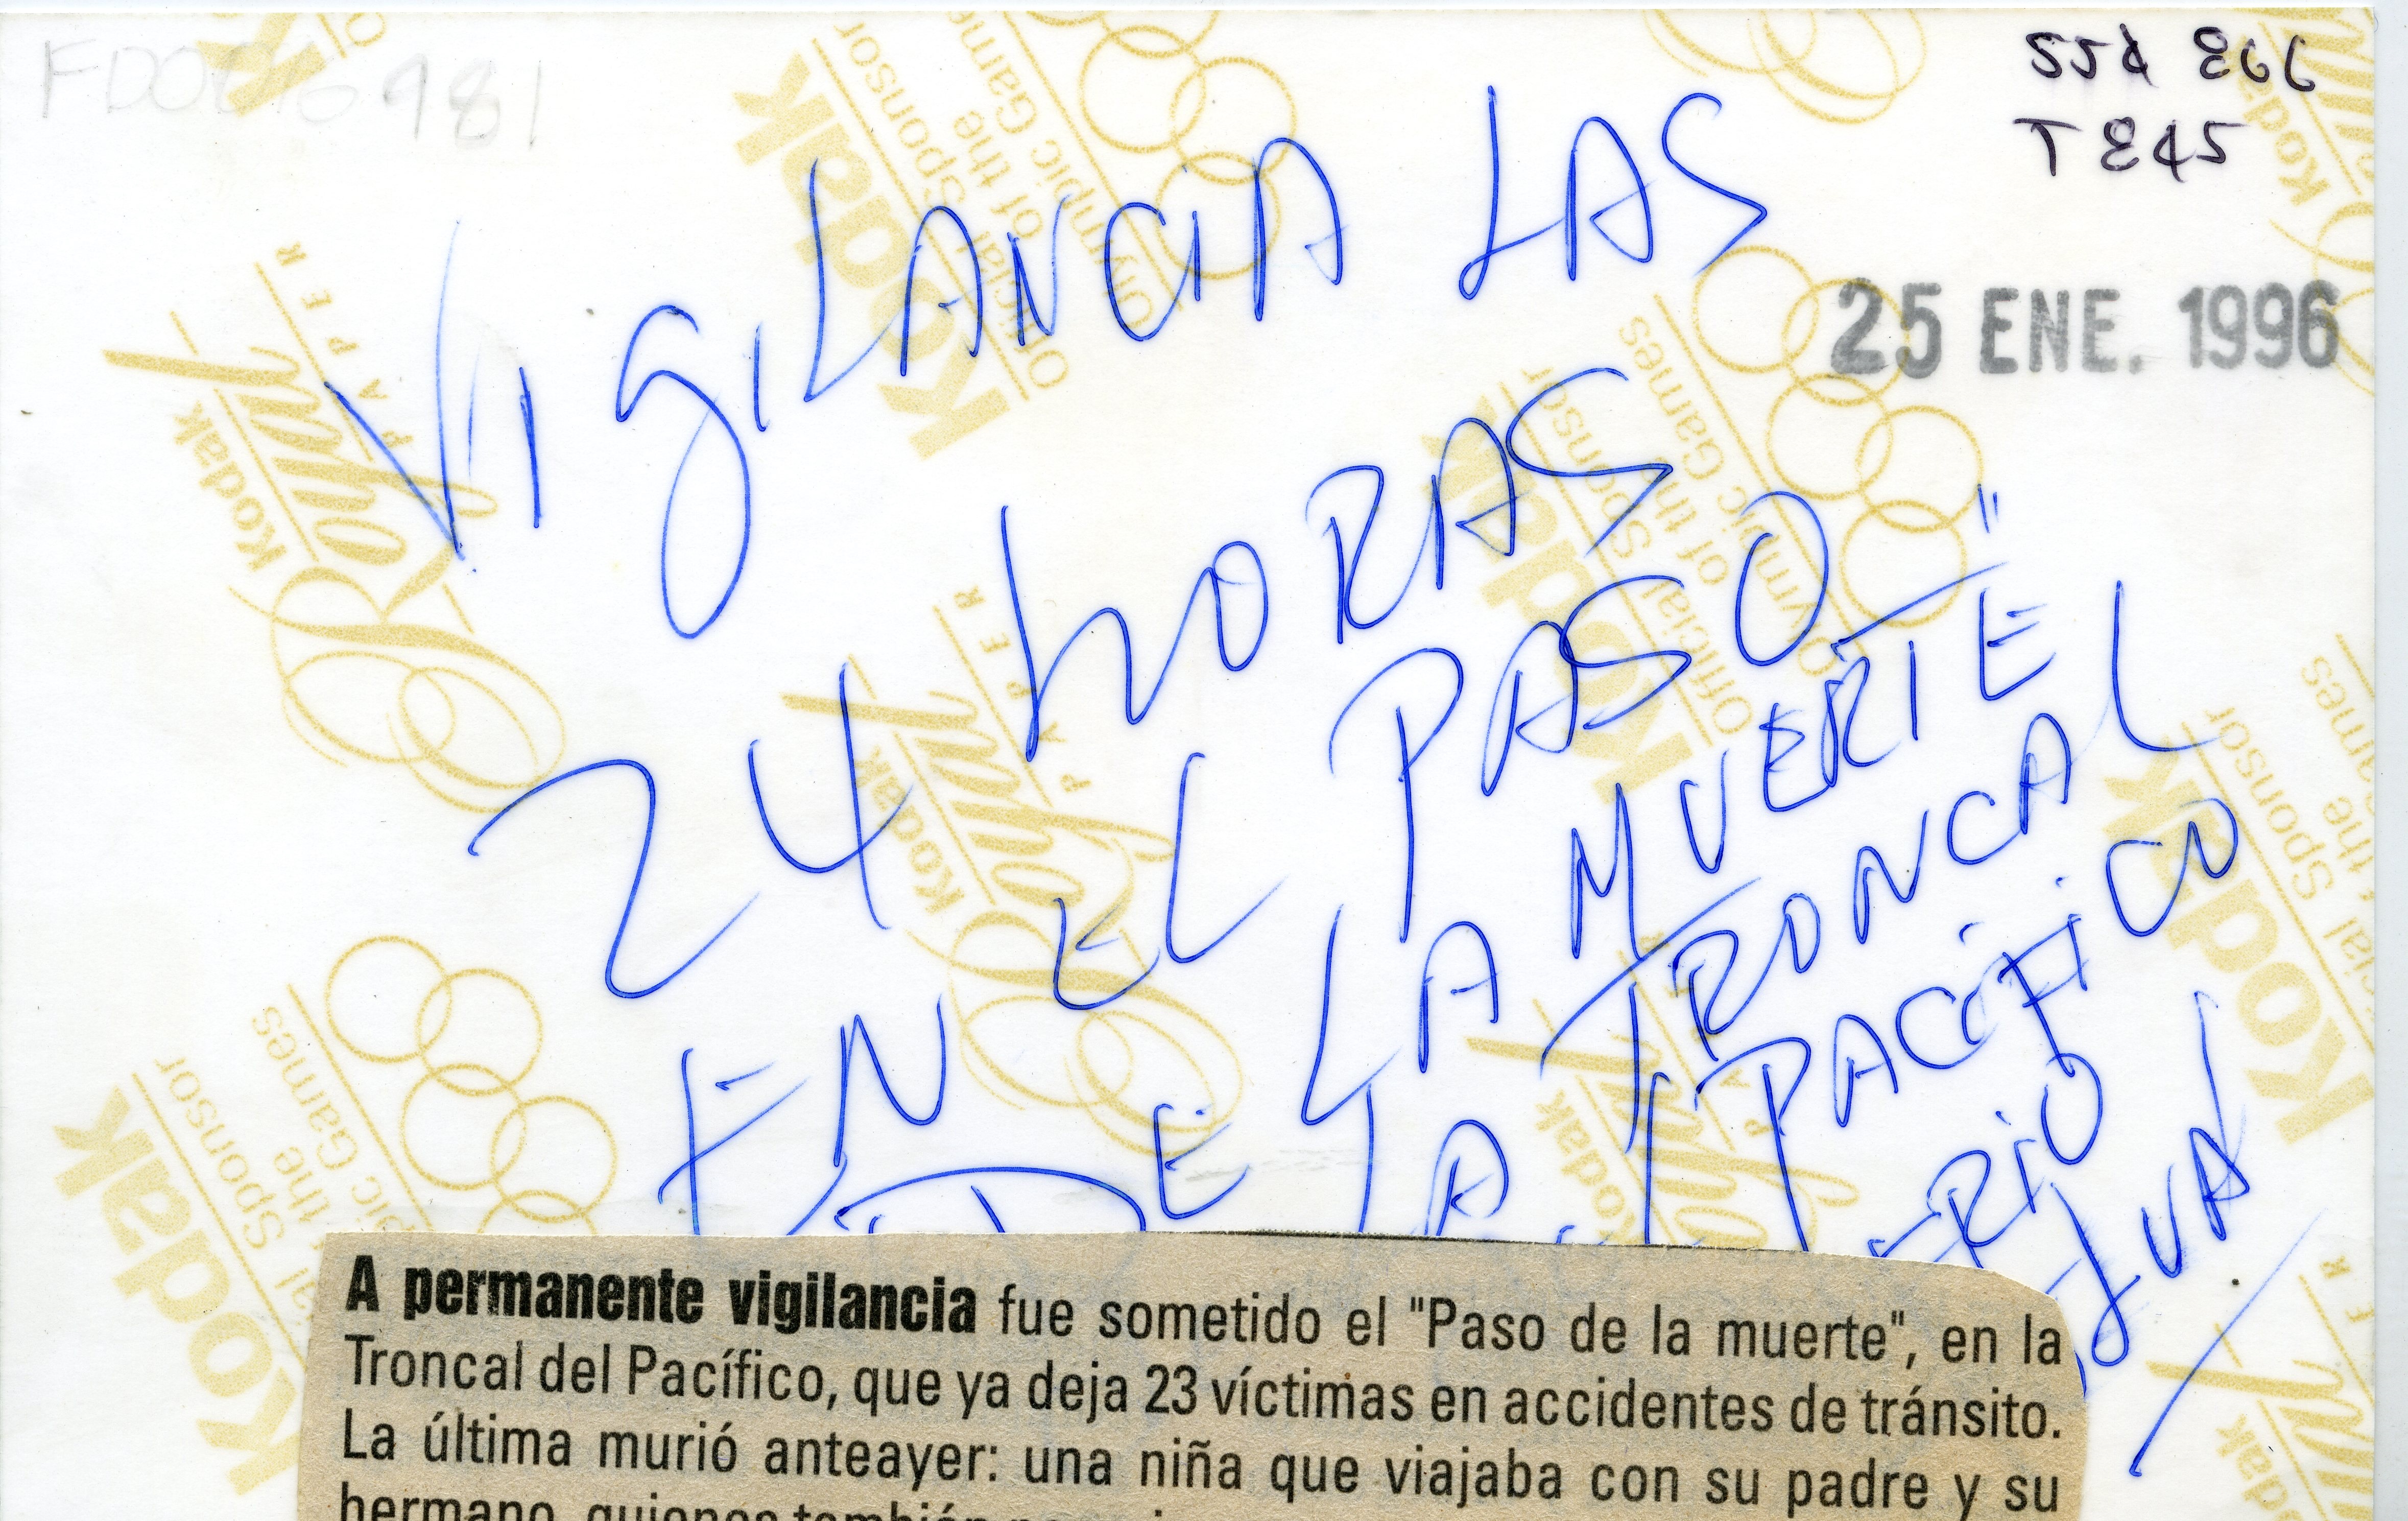 FD0016981
SS¢ 866
T 845
25 ENE. 1996
VIGILANCIA LAS
24 HORAS
EN EL PASO
DE LA MUERTE"
LA TRONCAL
PACIFICO
A permanente vigilancia fue sometido el "Paso de la muerte", en la
Troncal del Pacífico, que ya deja 23 víctimas en accidentes de tránsito.
La última murió anteayer: una niña que viajaba con su padre y su
hermano, quienes también
Kodak
Official Sponsor
of the
Olympic Games
Kodak
Royal
PAPER